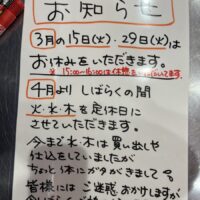 お知らせ
3月の15日(火)・29日(火)は
お休みをいただきます。
※15:00~16:00は休憩をいただいてます。
4月よりしばらくの間
火・水・木を定休日に
させていただきます。
今まで水・木は買い出しや
仕込をしていましたが
ちょっと体にガタがきまして
皆様にはご迷惑おかけしますが